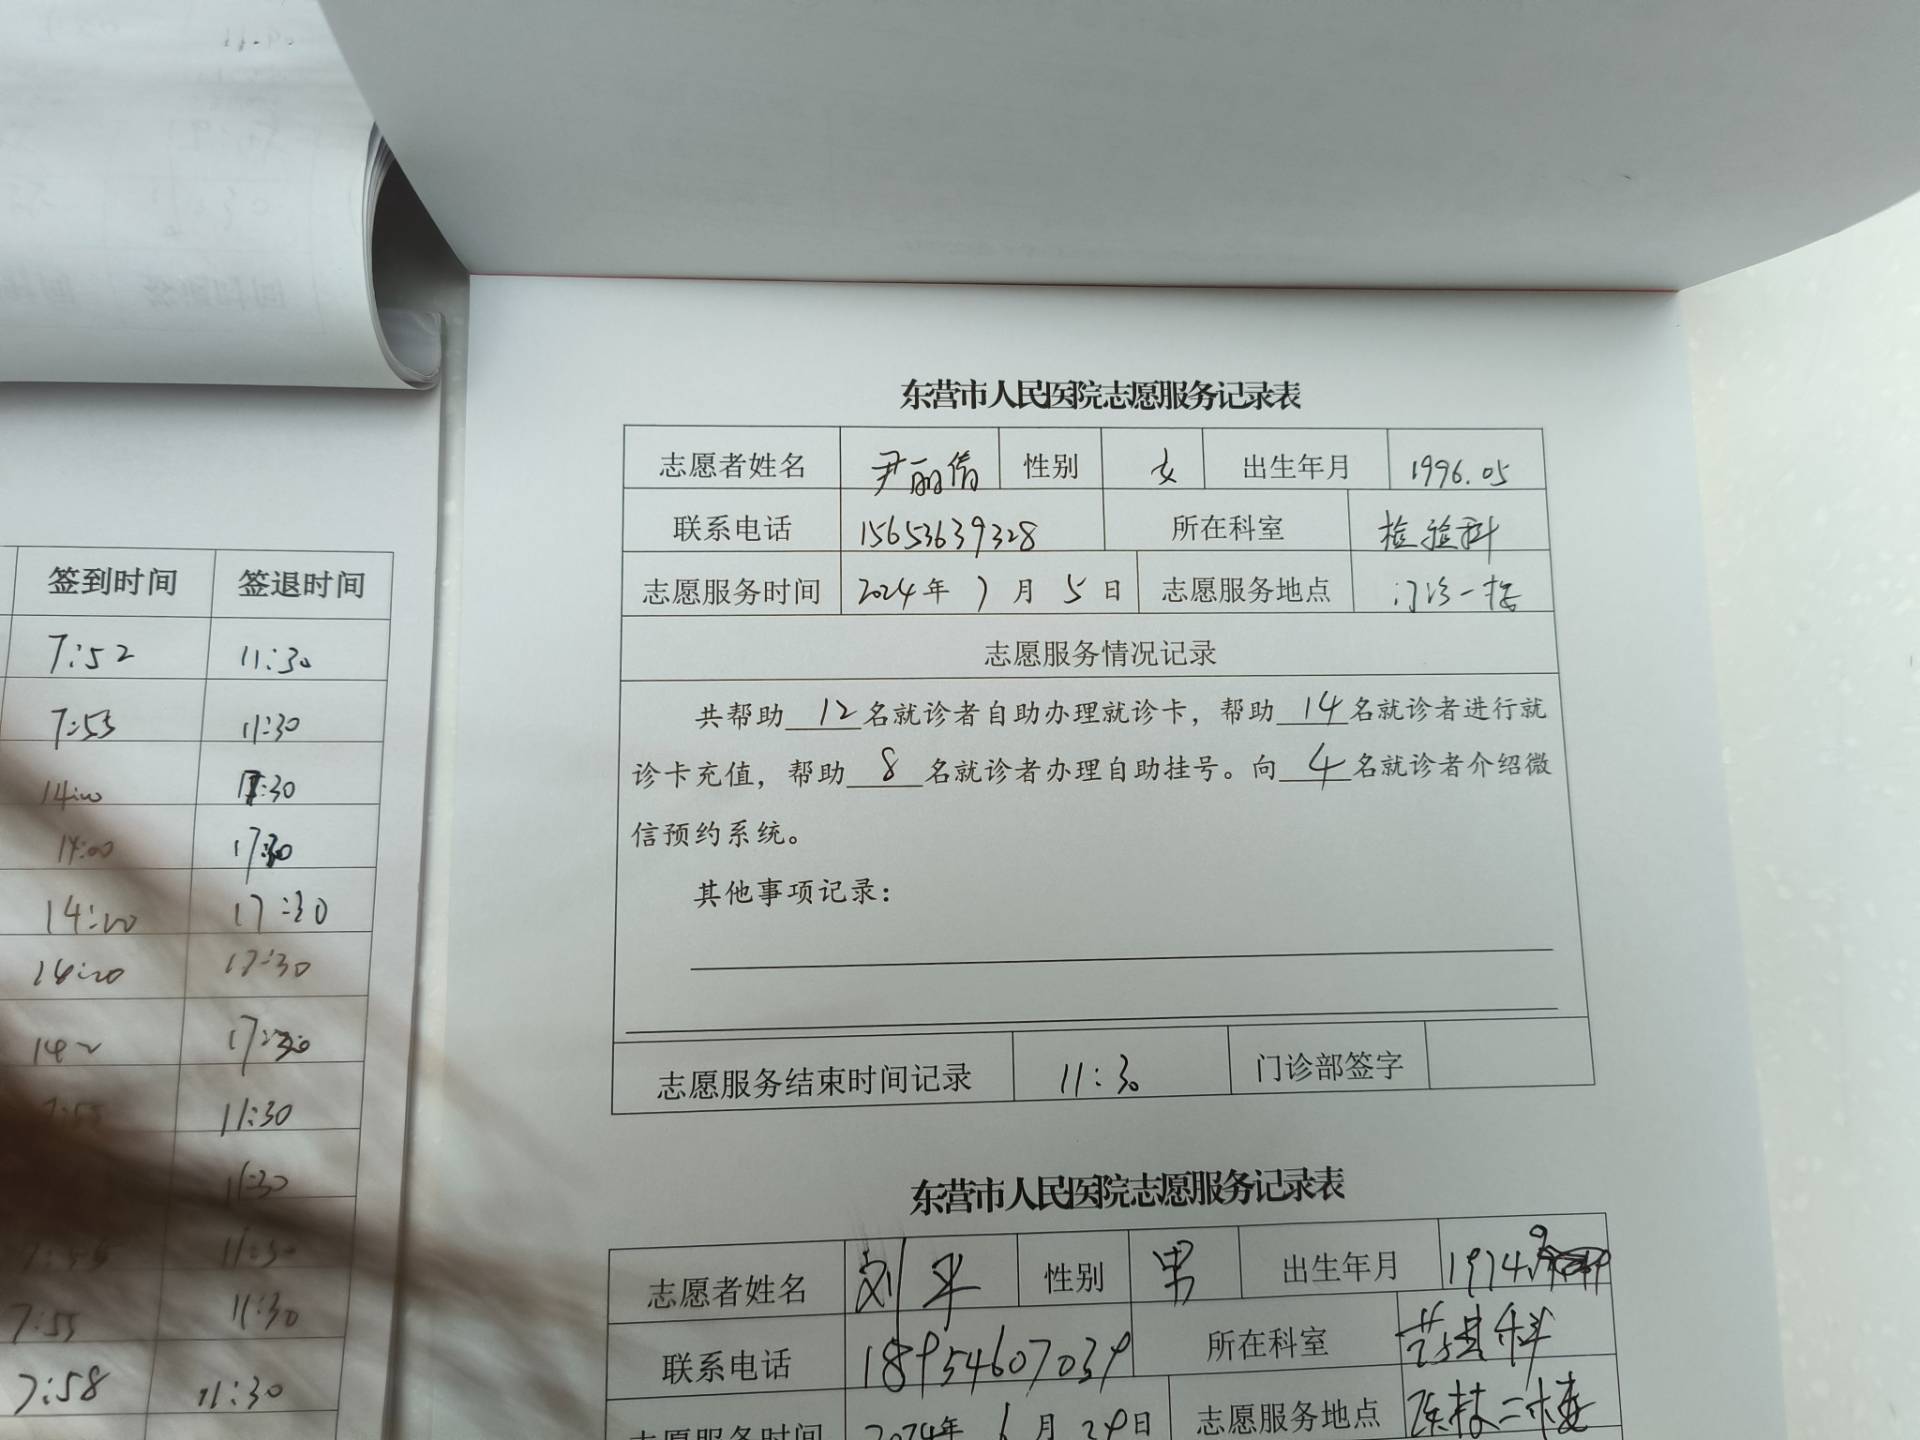 签到时间 签退时间
7:52 11:30
7:55 11:30
14:00 17:30
14:00 17:30
14:00 17:30
14:00 17:30
17:30
7:55 11:30
11:30
11:30
7:55 11:30
7:58 11:30
东营市人民医院志愿服务记录表
志愿者姓名 尹丽倩 性别 女 出生年月 1996.05
联系电话 15653639328 所在科室 检验科
志愿服务时间 2024年 7 月 5 日 志愿服务地点 门诊一楼
志愿服务情况记录
共帮助 12 名就诊者自助办理就诊卡，帮助 14 名就诊者进行就
诊卡充值，帮助 8 名就诊者办理自助挂号。向 4 名就诊者介绍微
信预约系统。
其他事项记录：
志愿服务结束时间记录 11:30 门诊部签字
东营市人民医院志愿服务记录表
志愿者姓名 刘平 性别 男 出生年月 1974
联系电话 18954607039 所在科室 科
志愿服务时间 2024年 6 月 29日 志愿服务地点 二楼